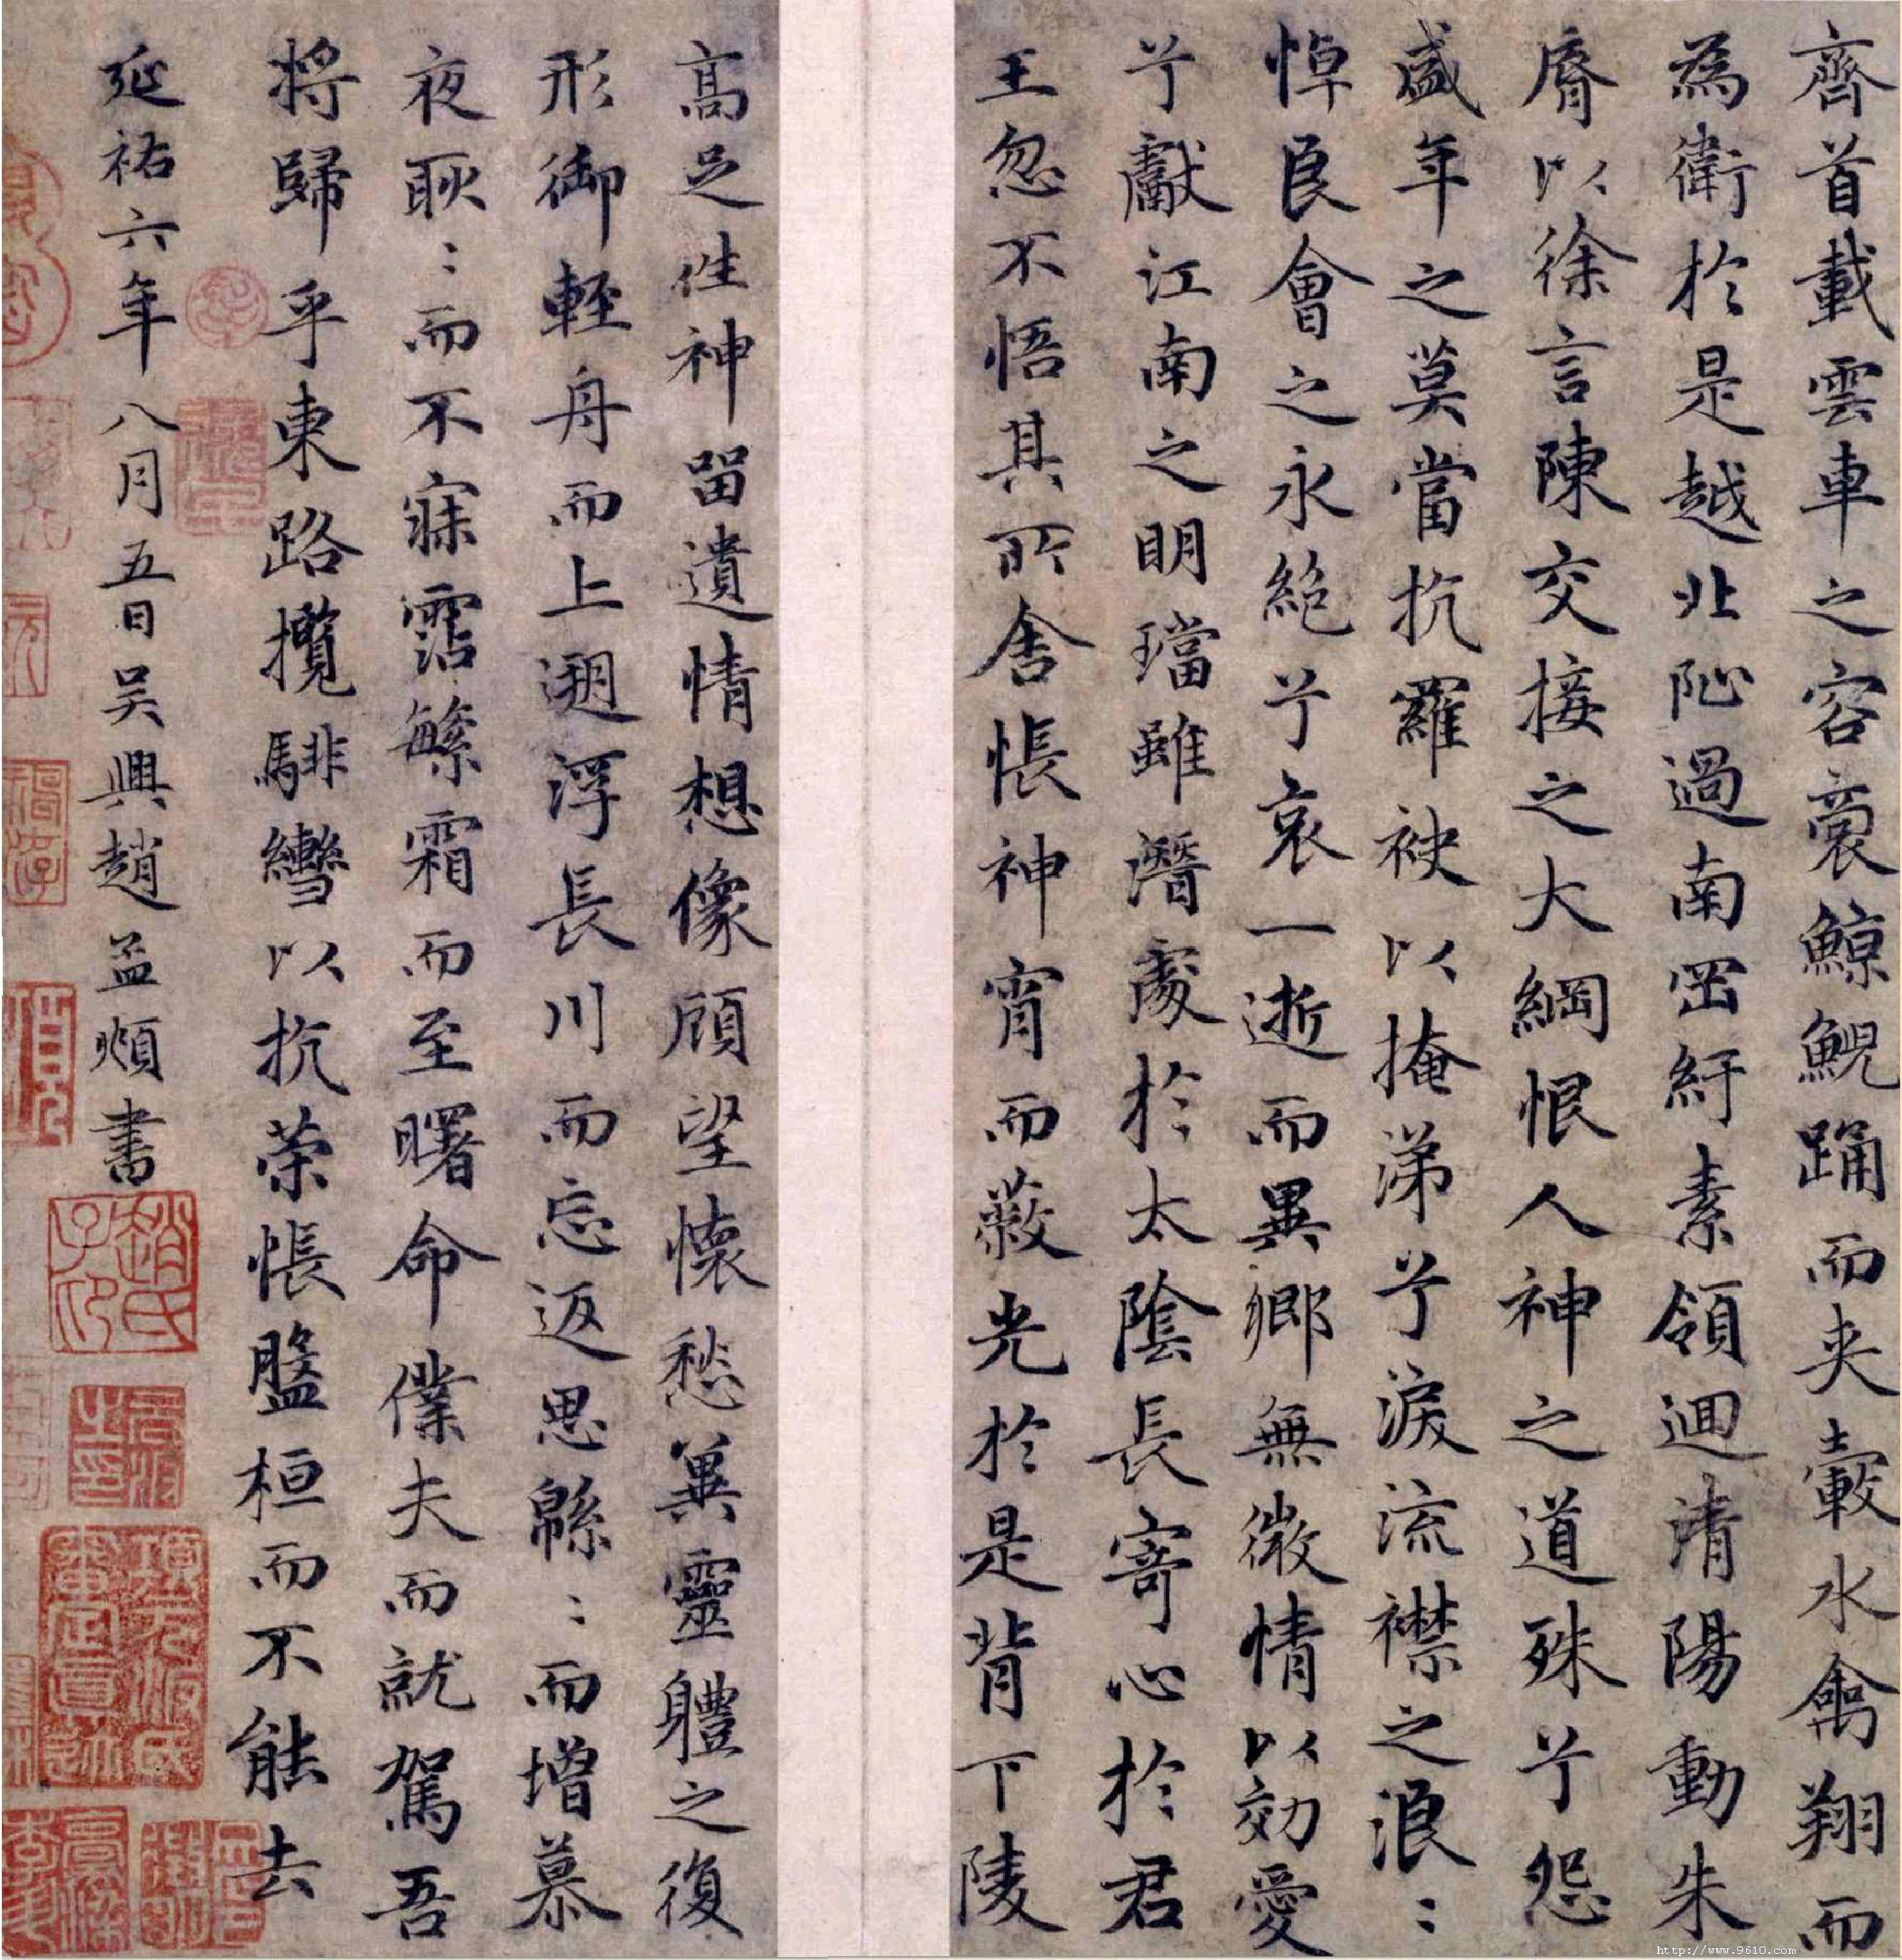 齊首載雲車之容裔鯨鯢踊而夾轂水禽翔而
為衛於是越北沚過南岡紆素領迴清陽動朱
脣以徐言陳交接之大綱恨人神之道殊兮怨
盛年之莫當抗羅袂以掩涕兮淚流襟之浪〻
悼良會之永絕兮哀一逝而異鄉無微情以効愛
兮獻江南之明璫雖潛處於太陰長寄心於君
王忽不悟其所舍悵神宵而蔽光於是背下陵
高足往神留遺情想像顧望懷愁冀靈體之復
形御輕舟而上遡浮長川而忘返思緜〻而增慕
夜耿〻而不寐霑繁霜而至曙命僕夫而就駕吾
將歸乎東路攬騑轡以抗策悵盤桓而不能去
延祐六年八月五日吳興趙孟頫書
趙氏子印
項元汴氏審定真跡
http://www.9610.com